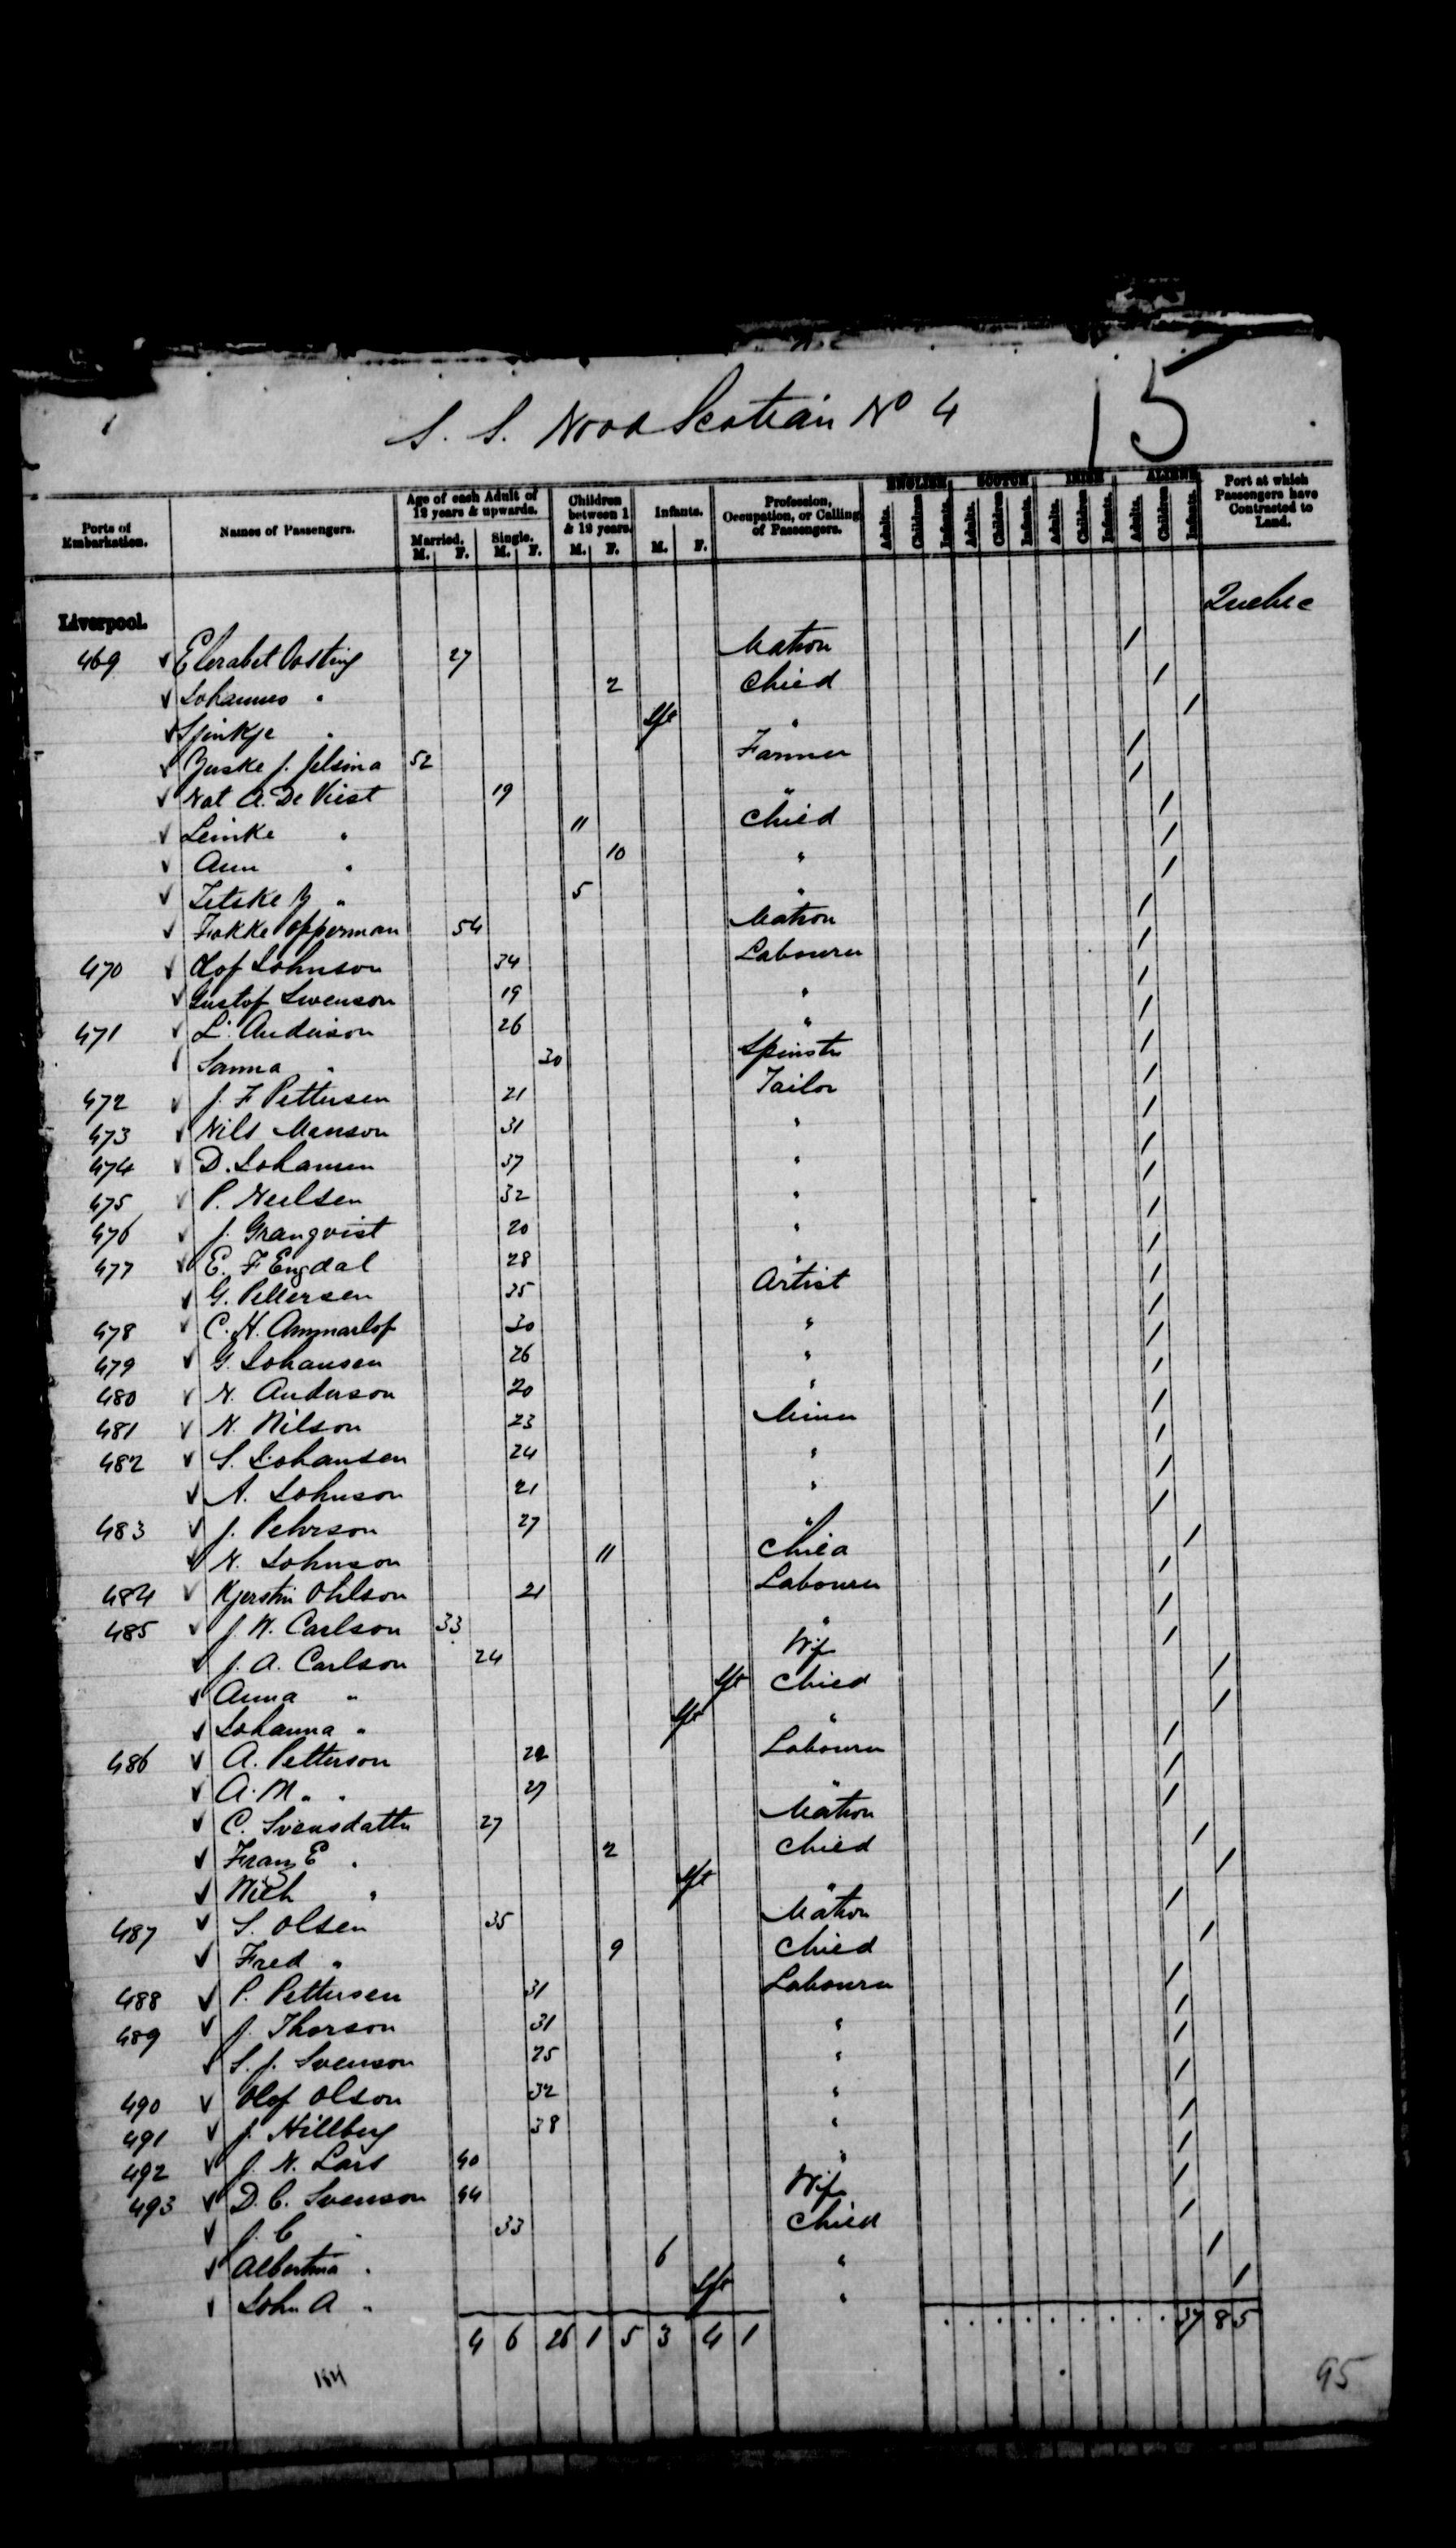 S. S. Nova Scotian No 4
15
Ports of Embarkation.
Names of Passengers.
Age of each Adult of 12 years & upwards.
Married. Single.
M. F. M. F.
Children between 1 & 12 years.
M. F.
Infants.
M. F.
Profession, Occupation, or Calling of Passengers.
ENGLISH SCOTCH IRISH ALIENS
Adults. Children Infants. Adults. Children Infants. Adults. Children Infants. Adults. Children Infants.
Port at which Passengers have Contracted to Land.
Quebec
Liverpool.
469 Elerabet Oosting 27 Matron /
Johannes " 2 Child /
Sjinkje " Ift " /
J. Jelsma 52 Farmer /
Nat A. De Vriest 19 " /
Leinke " 11 Child /
Ann " 10 " /
Tetske " 5 " /
Fokke Opperman 54 Matron /
470 Olof Johnson 34 Labourer /
Gustof Swenson 19 " /
471 L. Anderson 26 " /
Sanna " 30 Spinstr /
472 J. F Pettersen 21 Tailor /
473 Nils Manson 31 " /
474 D. Johansen 37 " /
475 P. Neilsen 32 " /
476 J. Granqvist 20 " /
477 E. F Engdal 28 " /
G. Pettersen 35 Artist /
478 C. H. Ammarlof 30 " /
479 G. Johansen 26 " /
480 N. Anderson 20 " /
481 N. Nilson 23 Miner /
482 S. Johansen 24 " /
A. Johnson 21 " /
483 J. Pehrson 27 " /
N. Johnson 11 Child /
484 Kjerstin Ohlson 21 Labourer /
485 J. W. Carlson 33 " /
J. A. Carlson 24 Wife /
Anna " Ift Child /
Johanna " Ift " /
486 A. Petterson 22 Labourer /
A. M. " 27 " /
C. Svensdatter 27 Matron /
Franz E " 2 Child /
" Ift " /
487 S. Olsen 35 Matron /
Fred " 9 Child /
488 P. Pettersen 31 Labourer /
489 J. Thorson 31 " /
S. J. Svenson 25 " /
490 Olof Olson 32 " /
491 J. Hillberg 38 " /
492 J. N. Lars 40 " /
493 D. C. Svenson 44 " /
J. C " 33 Wife /
Albertina " 6 Child /
John A " Ift " /
4 6 26 1 5 3 4 1 37 8 5
95